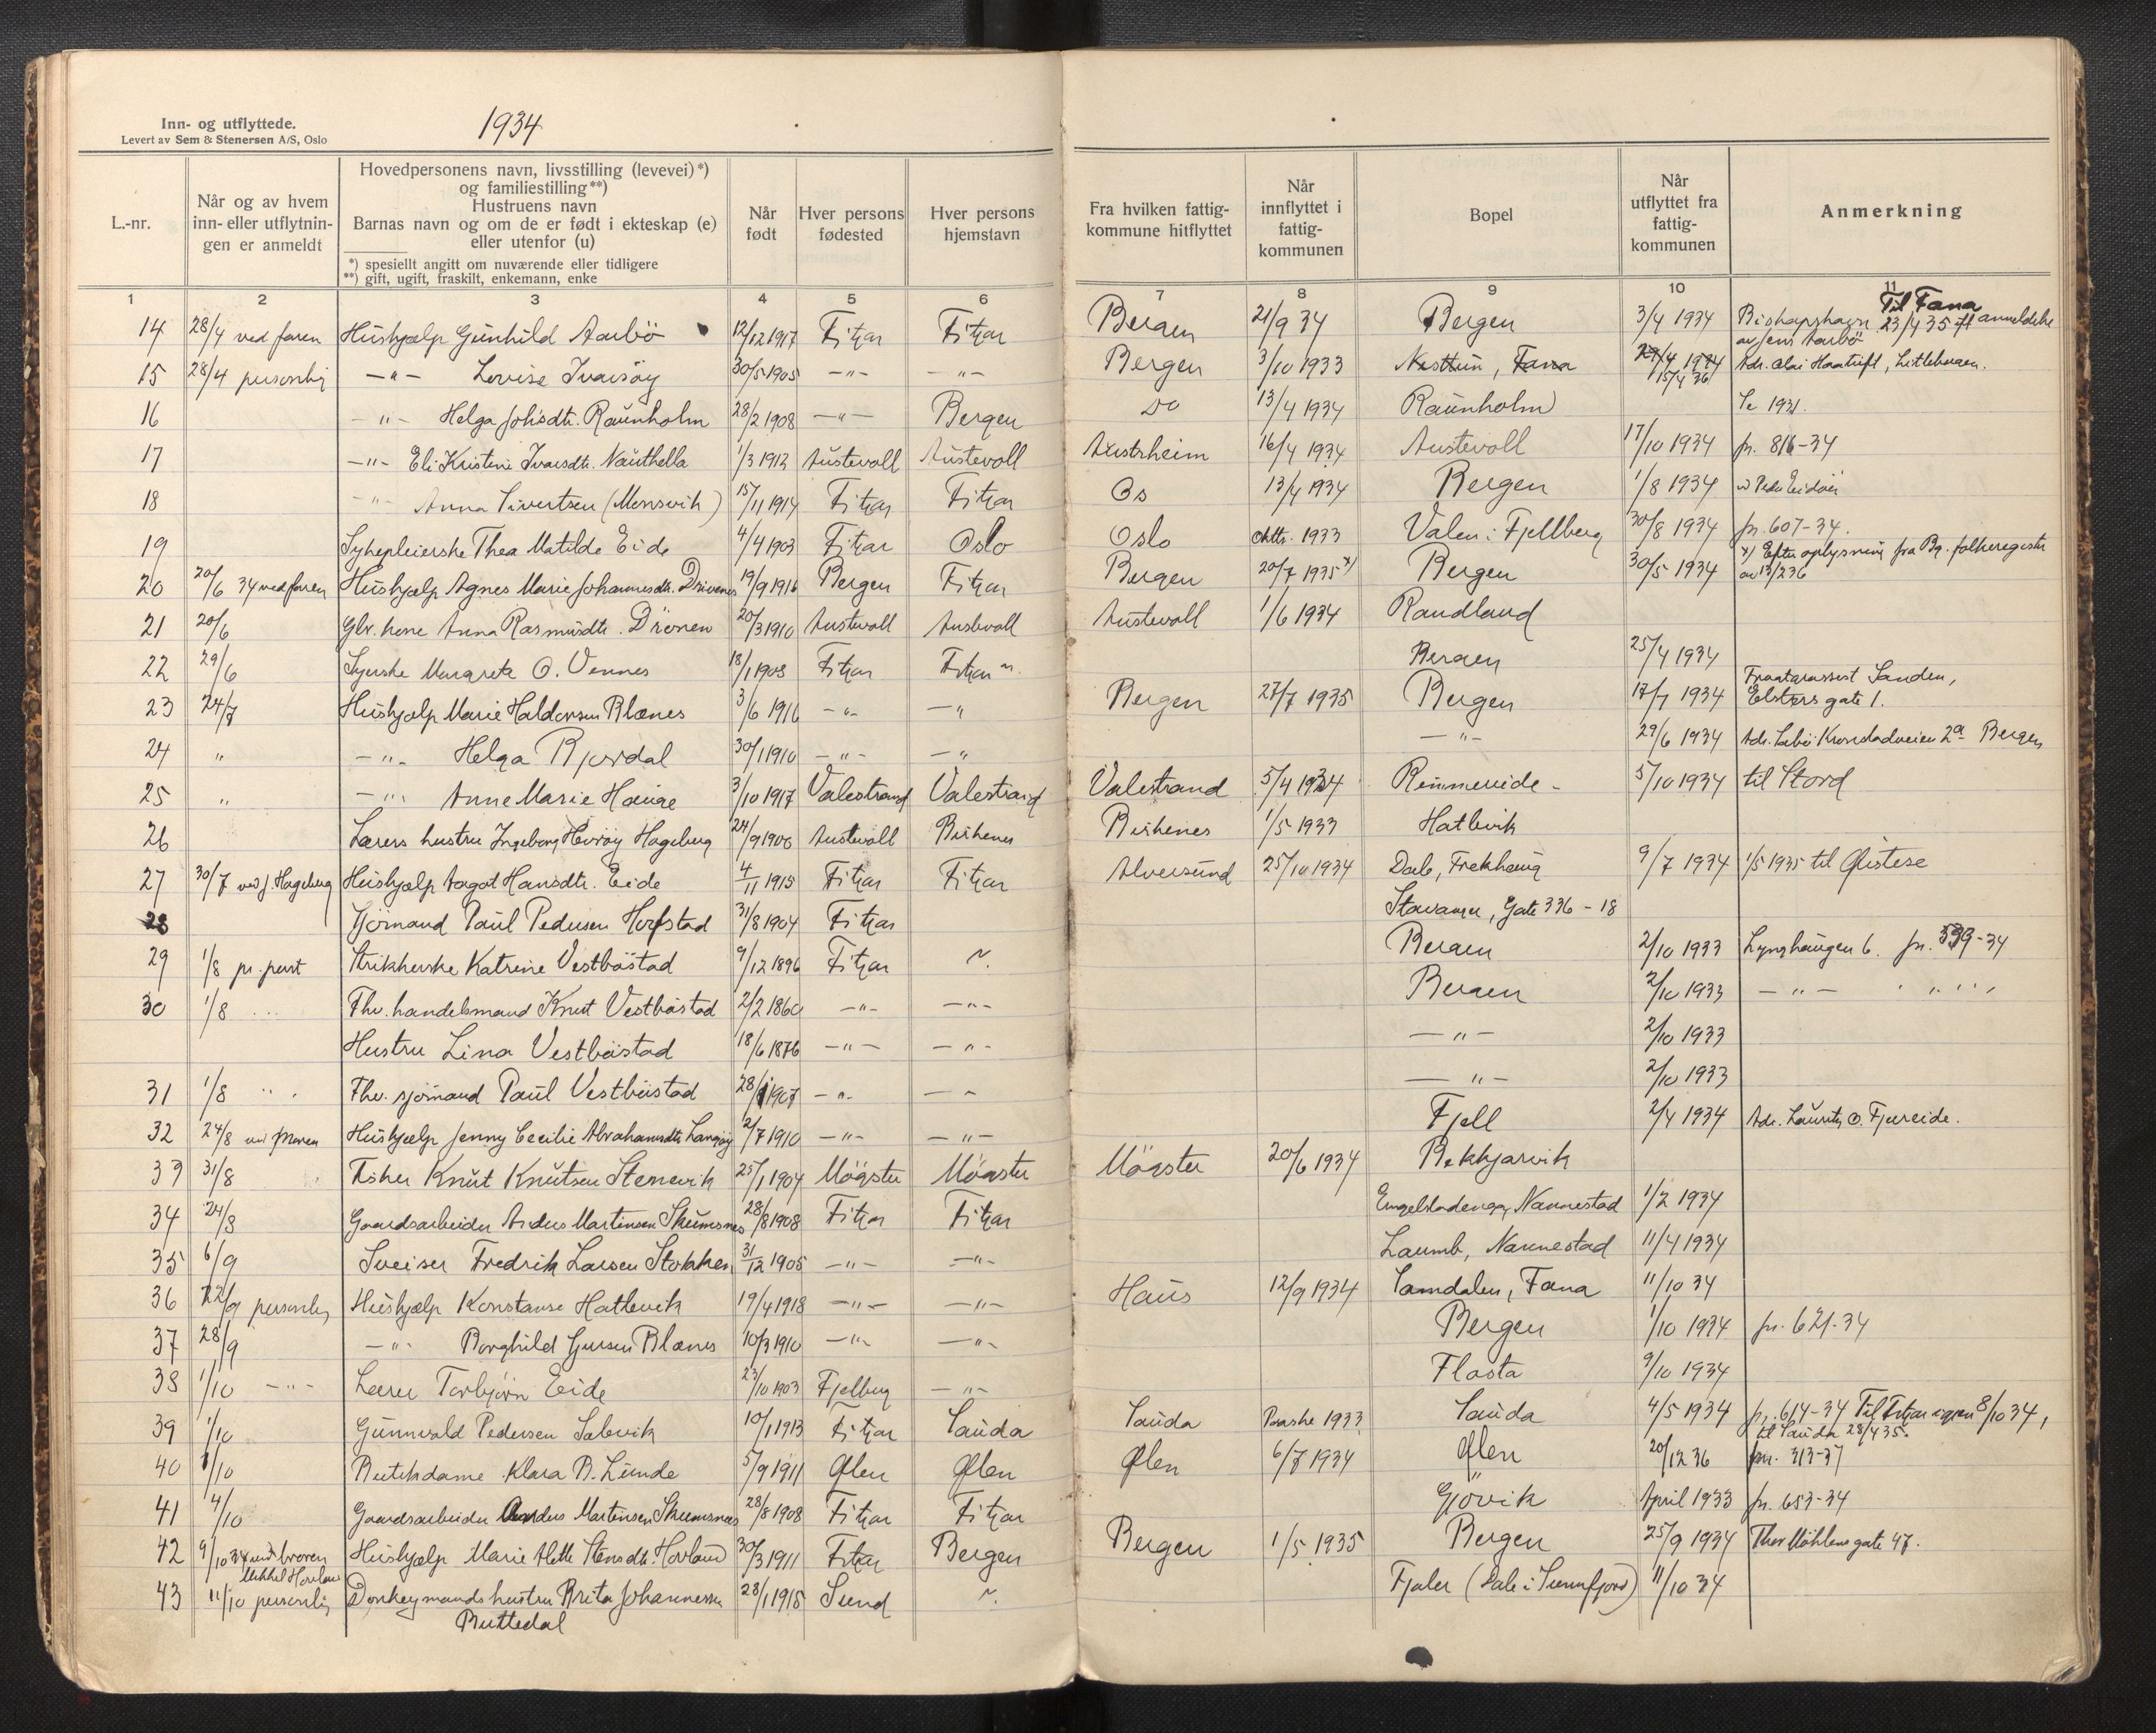 Inn- og utflyttede.
Levert av Sem & Stenersen A/S, Oslo
1934
L.-nr.
Når og av hvem inn- eller utflytnin-gen er anmeldt
Hovedpersonens navn, livsstilling (levevei)*) og familiestilling**)
Hustruens navn
Barnas navn og om de er født i ekteskap (e) eller utenfor (u)
*) spesiellt angitt om nuværende eller tidligere
**) gift, ugift, fraskilt, enkemann, enke
Når født
Hver persons fødested
Hver persons hjemstavn
Fra hvilken fattig-kommune hitflyttet
Når innflyttet i fattig-kommunen
Bopel
Når utflyttet fra fattig-kommunen
Anmerkning
1 2 3 4 5 6 7 8 9 10 11
14 28/4 ved faren Hushjælp Gunhild Aarbö 12/12 1917 Fitjar Fitjar Bergen 21/9 34 Bergen 3/4 1934 Bishapshagn Til Fana 23/4 35 anmeldelse av Jens Aarbö
15 28/4 personlig —"— Lovise Ivarsöy 30/5 1905 —"— —"— Bergen 3/10 1933 Nesttun, Fana 1934 15/4 36 Adr. Olai Haatuft, Litlebergen.
16 —"— Helga Johsdtr. Raunholm 28/2 1908 —"— Bergen Do 13/4 1934 Raunholm Se 1931.
17 —"— Eli Kristine Ivarsdtr. Nauthella 1/3 1913 Austevoll Austevoll Austrheim 16/4 1934 Austevoll 17/10 1934 jn. 816-34
18 —"— Anna Sivertsen (Mensvik) 15/11 1914 Fitjar Fitjar Os 13/4 1934 Bergen 1/8 1934 v/ Peder Eidöei
19 Sykepleierske Thea Matilde Eide 4/4 1903 Fitjar Oslo Oslo oktbr. 1933 Valen i Fjellberg 30/8 1934 jn. 607-34.
20 20/6 34 ved faren Hushjælp Agnes Marie Johannesdtr. Drivenes 19/9 1916 Bergen Fitjar Bergen 20/7 1935 x) Bergen 30/5 1934 x) Efter oplysning fra Bg. folkeregister av 13/2 36
21 20/6 Gbr. kone Anna Rasmusdtr. Drönen 20/3 1910 Austevoll Austevoll Austevoll 1/6 1934 Randland
22 29/6 Syerske Margrete O. Vennes 18/1 1903 Fitjar Fitjar Bergen 25/4 1934
23 24/7 Hushjælp Marie Haldorsen Blænes 3/6 1916 —"— —"— Bergen 27/7 1935 Bergen 17/7 1934 Sanden, Elsters gate 1.
24 " —"— Helga Bjordal 30/1 1910 —"— —"— —"— 29/6 1934 Adr. Kronstadveien 2a Bergen
25 " —"— Anne Marie Hauge 3/10 1917 Valestrand Valestrand Valestrand 5/4 1934 Rimmereide 5/10 1934 til Stord
26 Lærers hustru Ingeborg Hevröy Hageberg 24/9 1906 Austevoll Birkenes Birkenes 1/5 1933 Hatlevik
27 30/7 ved J. Hageberg Hushjælp Aagot Hansdtr. Eide 4/11 1915 Fitjar Fitjar Alversund 25/10 1934 Dale, Frekhaug 9/7 1934 1/5 1935 til Øistese
28 Sjömand Paul Pedersen Horfstad 31/8 1904 Fitjar Stavanger, Gate 336-18
29 1/8 pr. post Strikkerske Katrine Vestböstad 9/12 1896 Fitjar ~ Bergen 2/10 1933 Lynghaugen 6. jn. 539-34
30 1/8 Fhv. handelsmand Knut Vestböstad 2/2 1860 —"— —"— Bergen 2/10 1933 —"—
Hustru Lina Vestböstad 18/6 1876 —"— —"— —"— 2/10 1933
31 1/8 " Fhv. sjömand Paul Vestböstad 28/1 1907 —"— —"— —"— 2/10 1933
32 24/8 ved moren Hushjælp Jenny Cecilie Abrahamsdtr. Langöy 2/7 1910 —"— —"— Fjell 2/4 1934 Adr. Lauritz O. Fjæreide.
33 31/8 Fisker Knut Knutsen Stenevik 25/1 1904 Mögster Mögster Mögster 20/6 1934 Bekkjarvik
34 24/8 Gaardsarbeider Anders Martinsen Skumsnes 28/8 1908 Fitjar Fitjar Nannestad 1/2 1934
35 6/9 Sveiser Fredrik Larsen Stokken 31/12 1905 —"— —"— Laumb, Nannestad 11/4 1934
36 12/9 personlig Hushjælp Konstanse Hatlevik 19/4 1918 —"— —"— Haus 12/9 1934 Samdalen, Fana 11/10 34
37 28/9 —"— Borghild Jensen Blænes 10/3 1910 —"— —"— Bergen 1/10 1934 jn. 621-34
38 1/10 —"— Lærer Torbjörn Eide 23/10 1903 Fjelberg —"— Flosta 9/10 1934
39 1/10 Gunnvald Pedersen Salevik 10/1 1913 Fitjar Sauda Sauda Paaske 1933 Sauda 4/5 1934 jn. 614-34 Til Fitjar igjen 8/10 34, til Sauda 28/4 35.
40 1/10 Butikdame Klara B. Lunde 5/9 1911 Ølen Ølen Ølen 6/7 1934 Ølen 20/12 36 jnr. 313-37
41 4/10 Gaardsarbeider Anders Martinsen Skumsnes 28/8 1908 Fitjar Fitjar Gjövik April 1933 jn. 653-34
42 9/10 34 ved broren Mikkel Hovland Hushjælp Marie Alette Stensdtr. Hovland 30/3 1911 Fitjar Bergen Bergen 1/5 1935 Bergen 25/9 1934 Thor Möhlens gate 47.
43 11/10 personlig Donkeymands hustru Brita Johannessen 28/1 1915 Sund ~ Fjaler (Dale i Sunnfjord) 11/10 34
Ruttedal